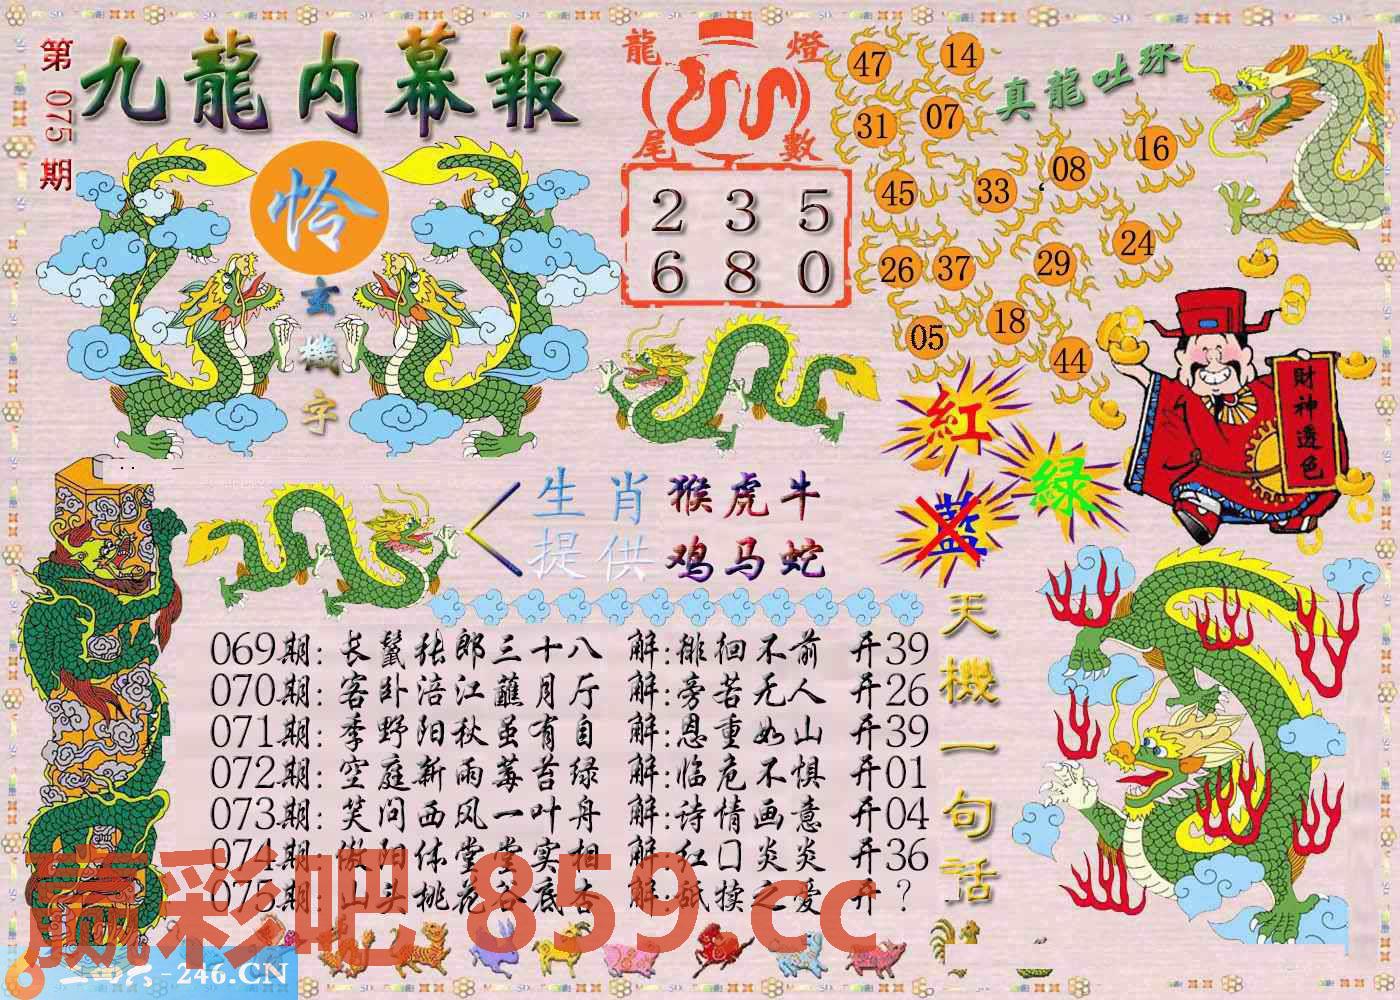 第075期
九龍内幕報
怜
玄機字
龍燈尾數
2 3 5
6 8 0
真龍吐珠
47 14
31 07
45 33 08 16
26 37 29 24
05 18 44
財神透色
紅
绿
藍
生肖提供
猴虎牛
鸡马蛇
天機一句話
069期:长鬣张郎三十八 解:徘徊不前 开39
070期:客卧涪江蘸月厅 解:旁若无人 开26
071期:季野阳秋虽有自 解:恩重如山 开39
072期:空庭新雨莓苔绿 解:临危不惧 开01
073期:笑问西风一叶舟 解:诗情画意 开04
074期: 阳体堂堂实相 解:红口炎炎 开36
075期:山头桃花谷底杏 解:舐犊之爱 开?
赢彩吧 859.cc
二四六-246.CN